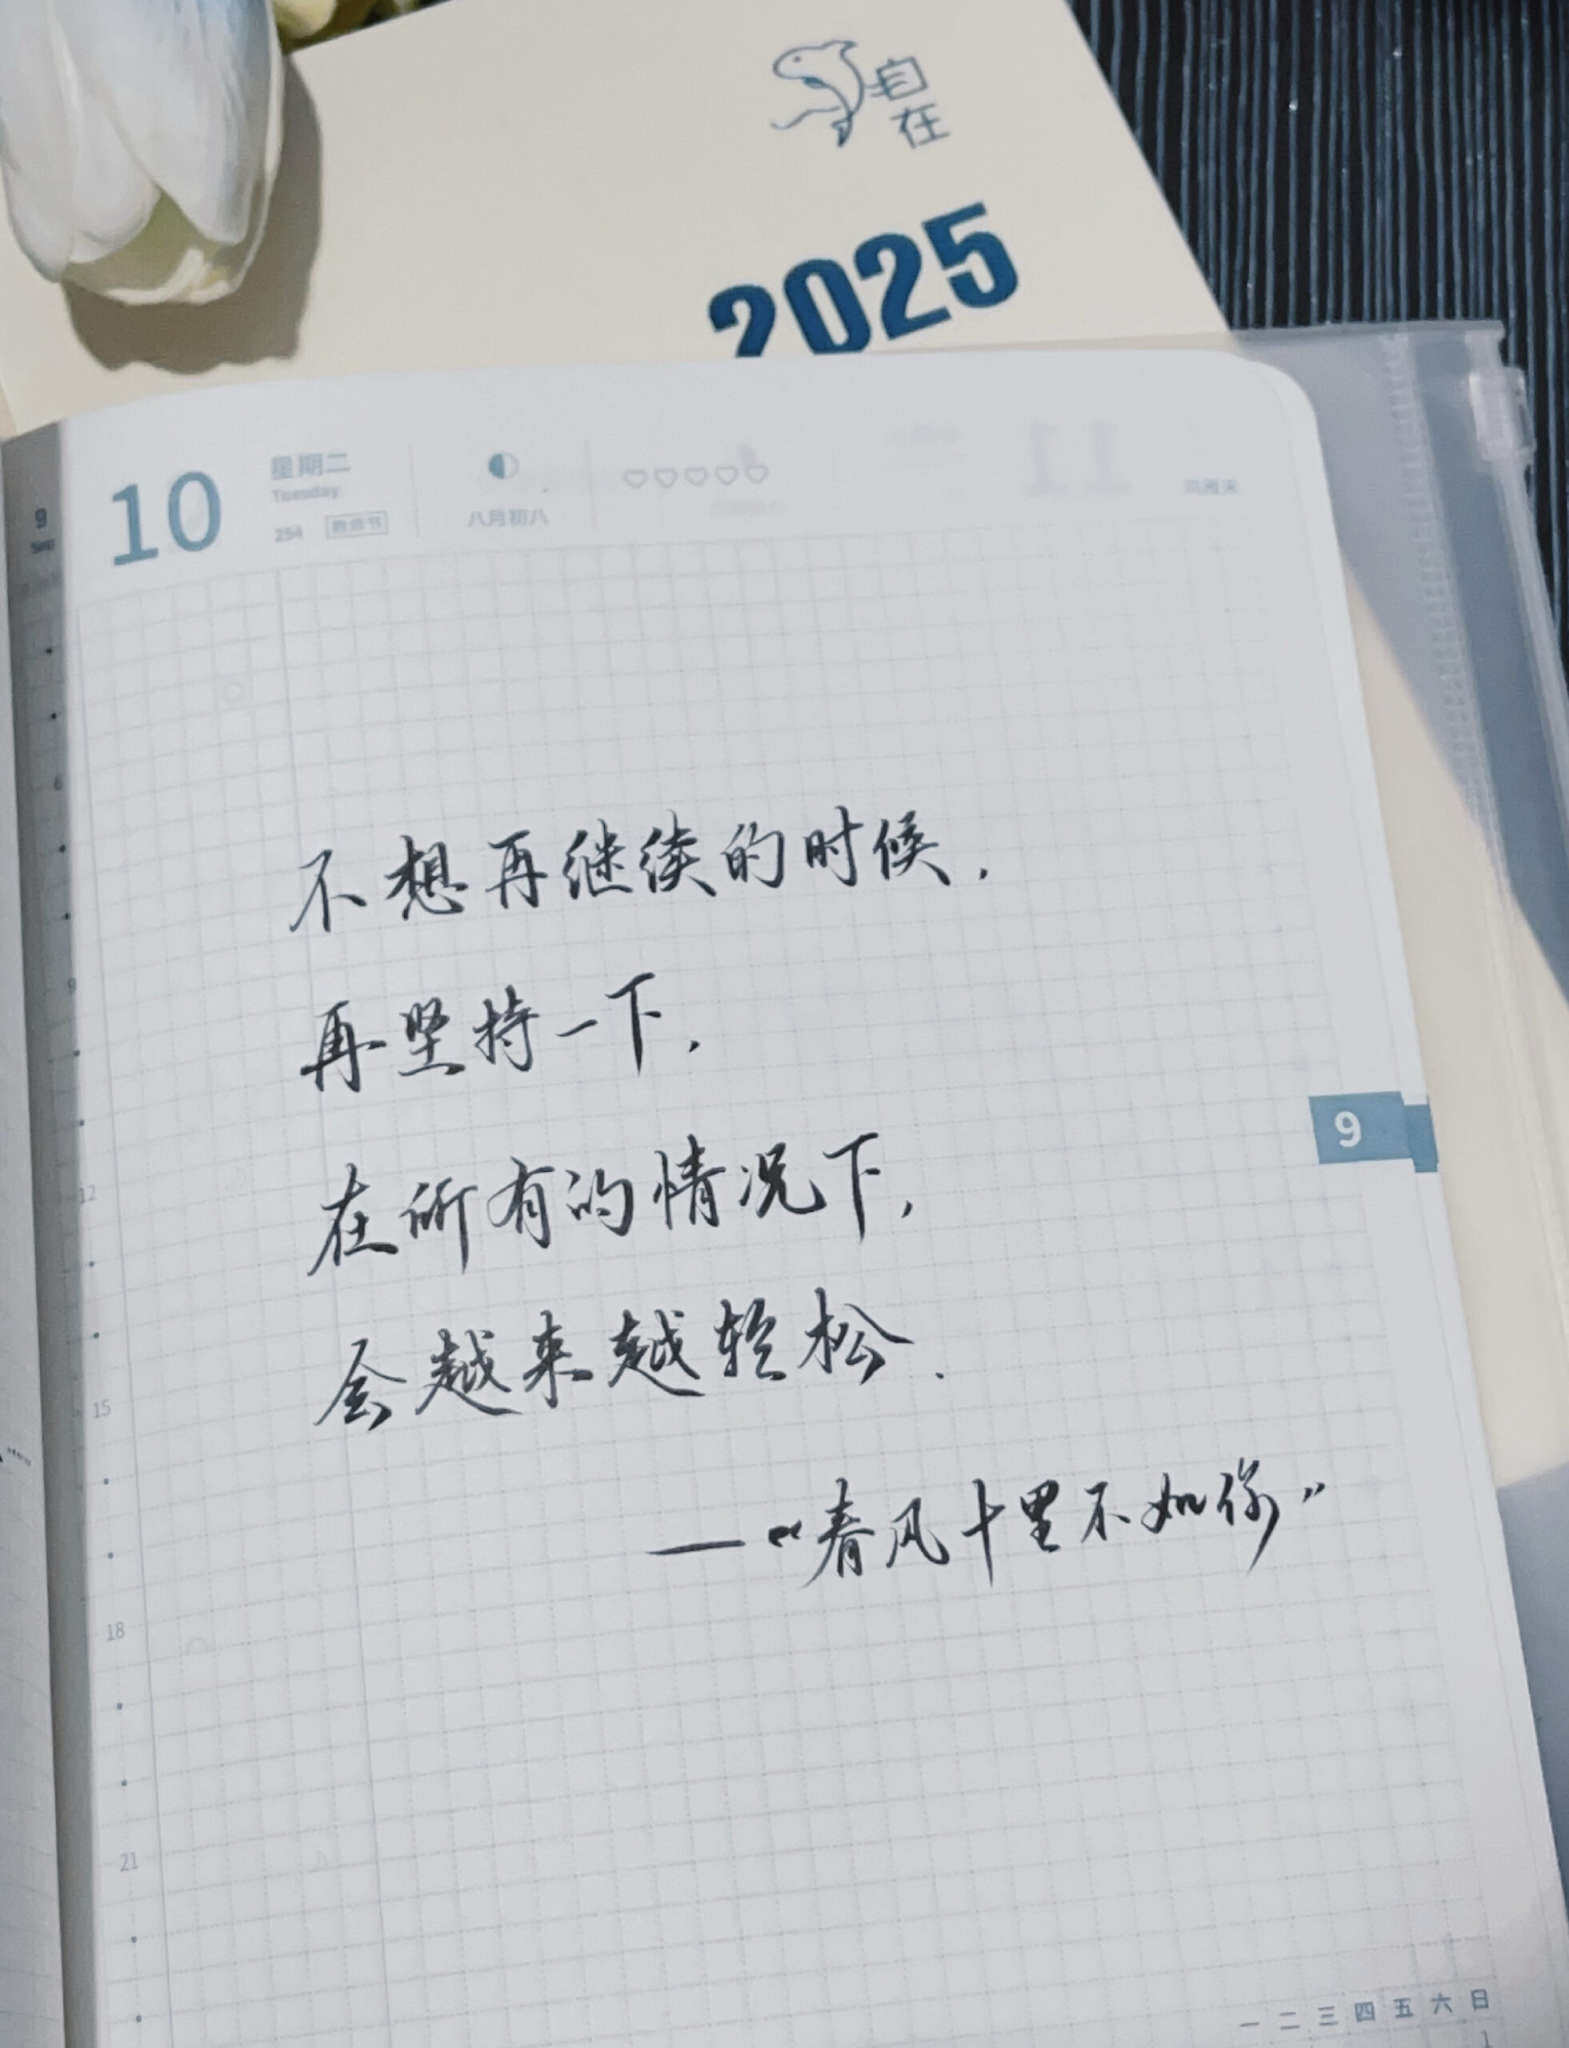 自在
2025
9
10
星期二
Tuesday
254 教师节
八月初八
11
6
9
12
15
18
21
9
不想再继续的时候.
再坚持一下.
在所有的情况下,
会越来越轻松.
—“春风十里不如你”
一 二 三 四 五 六 日
1